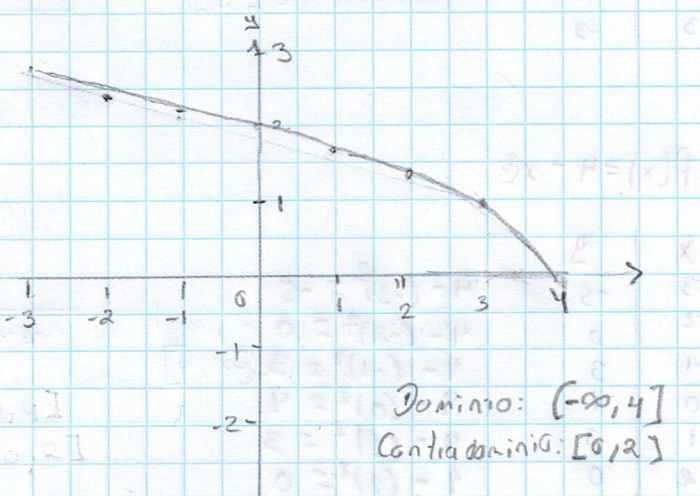 y
3
2
1
0
-3 -2 -1 1 2 3 4
-1
-2
Dominio: (-∞, 4]
Contradominio: [0, 2]